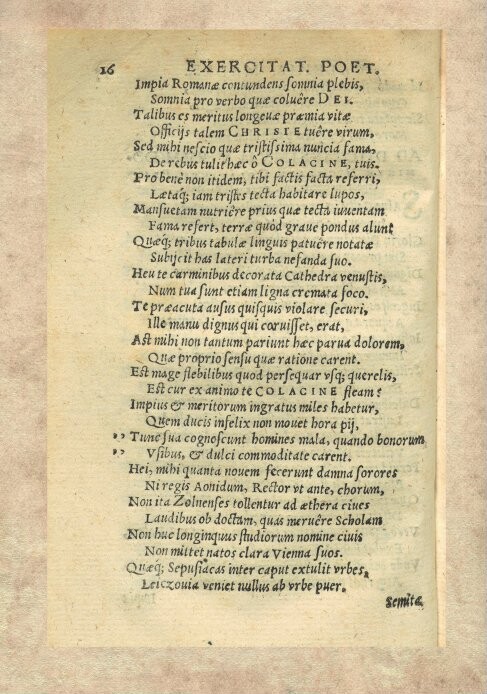 16 EXERCITAT. POET.
Impia Romanæ contundens somnia plebis,
Somnia pro verbo quæ coluêre DEI.
Talibus es meritus longeuæ præmia vitæ
Officijs talem CHRISTE tuêre virum,
Sed mihi nescio quæ tristissima nuncia fama,
De rebus tulit hæc ô COLACINE, tuis.
Pro benè non itidem, tibi factis facta referri,
Lætaq; iam tristes tecta habitare lupos,
Mansuetam nutriêre prius quæ tecta iuuentam
Fama refert, terræ quòd graue pondus alunt
Quæq; tribus tabulæ linguis patuêre notatæ
Subijcit has lateri turba nefanda suo.
Heu te carminibus decorata Cathedra venustis,
Num tua sunt etiam ligna cremata foco.
Te præacuta ausus quisquis violare securi,
Ille manu dignus qui coruisset, erat,
Ast mihi non tantum pariunt hæc parua dolorem,
Quæ proprio sensu quæ ratione carent.
Est mage flebilibus quod persequar vsq; querelis,
Est cur ex animo te COLACINE fleam?
Impius & meritorum ingratus miles habetur,
Quem ducis infelix non mouet hora pij,
" Tunc sua cognoscunt homines mala, quando bonorum
" Vsibus, & dulci commoditate carent.
Hei, mihi quanta nouem fecerunt damna sorores
Ni regis Aonidum, Rector vt ante, chorum,
Non ita Zolnenses tollentur ad æthera ciues
Laudibus ob doctam, quas meruêre Scholam
Non huc longinquus studiorum nomine ciuis
Non mittet natos clara Vienna suos.
Quæq; Sepusiacas inter caput extulit vrbes,
Leiczouia veniet nullus ab vrbe puer.
Semitæ